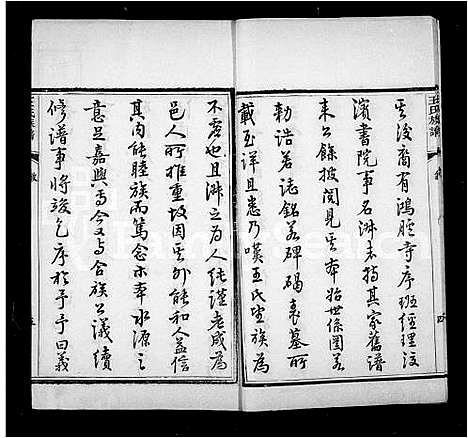 其後裔有鴻臚寺序班經理汶
濱書院事名淋末持其家舊譜
來公餘披閱見其本始世系圖若
勅誥若誌銘若碑碣表墓所
載至詳且悉乃嘆王氏望族為
不虛也且淋之為人純謹老成為
邑人所推重故因其外能和人益信
其內能睦族而篤念木本水源之
意足嘉興焉今又與合族公議續
修譜事將竣乞序於予予曰義
王氏族譜
四
五